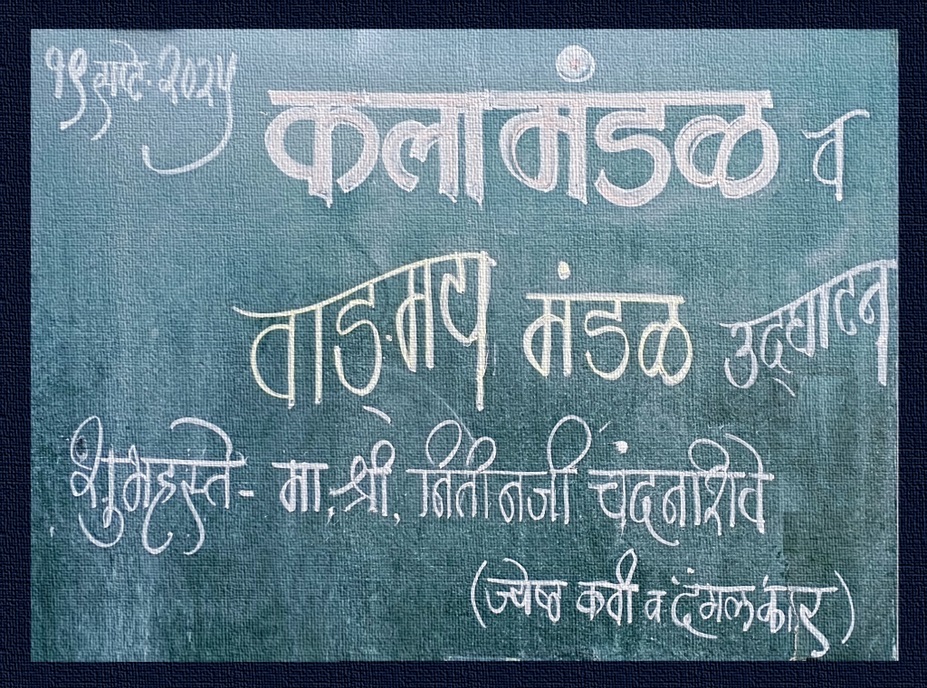 १९ सप्टें. २०२५
कलामंडळ व
वाङ्मय मंडळ उद्घाटन
शुभहस्ते - मा. श्री. नितीनजी चंदनशिवे
(ज्येष्ठ कवी व दंगलकार)